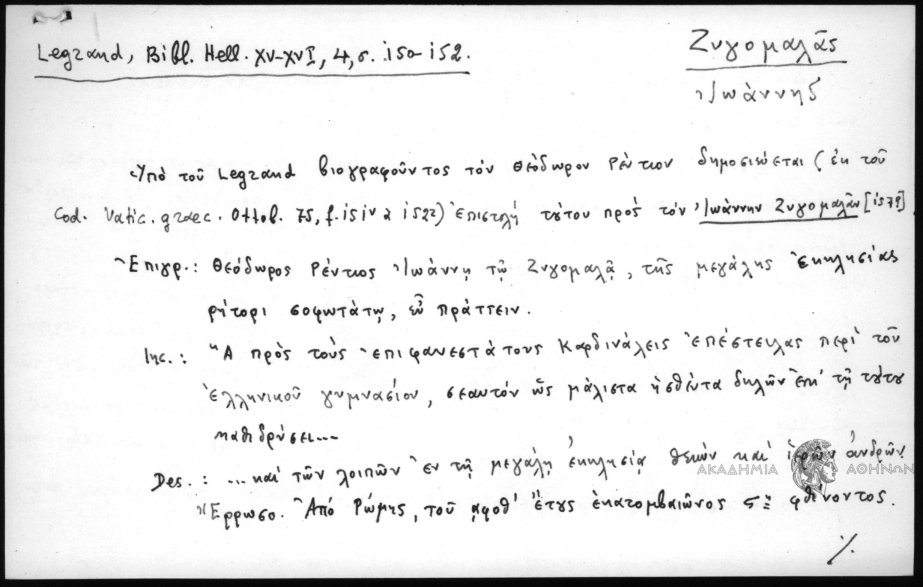 Legrand, Bibl. Hell. XV-XVI, 4, σ. 150-152.
Ζυγομαλᾶς
Ἰωάννης
Ὑπὸ τοῦ Legrand βιογραφοῦντος τὸν Θεόδωρον Ρέντιον δημοσιεύεται (ἐκ τοῦ
Cod. Vatic. graec. Ottob. 75, f. 151v 152) Ἐπιστολὴ τούτου πρὸς τὸν Ἰωάννην Ζυγομαλᾶν [1579].
Ἐπιγρ.: Θεόδωρος Ρέντιος Ἰωάννῃ τῷ Ζυγομαλᾷ, τῆς μεγάλης ἐκκλησίας
ρήτορι σοφωτάτῳ, εὖ πράττειν.
Inc.: Ἃ πρὸς τοὺς ἐπιφανεστάτους Καρδινάλεις ἐπέστειλας περὶ τοῦ
ἑλληνικοῦ γυμνασίου, σεαυτόν ὡς μάλιστα ἡσθέντα δηλῶν ἐπὶ τῇ τούτου
καθιδρύσει...
Des.: ...καὶ τῶν λοιπῶν ἐν τῇ μεγάλῃ ἐκκλησίᾳ θείων καὶ ἱερῶν ἀνδρῶν
Ἔρρωσο. Ἀπὸ Ρώμης, τοῦ αφοθ' ἔτους ἑκατομβαιῶνος φθίνοντος.
ΑΚΑΔΗΜΙΑ ΑΘΗΝΩΝ
./.